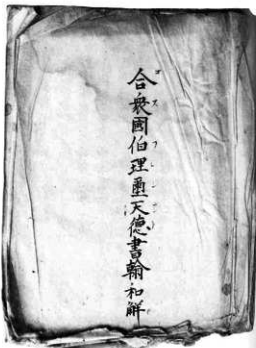 合衆國伯理璽天德書翰和解